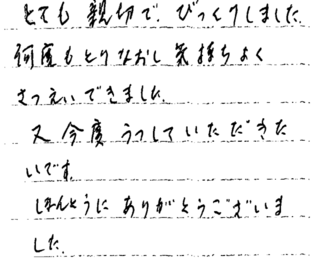 とても親切で、びっくりしました。
何度もとりなおし気持ちよく
さつえいできました。
又今度うつしていただきた
いです。
ほんとうにありがとうございま
した。